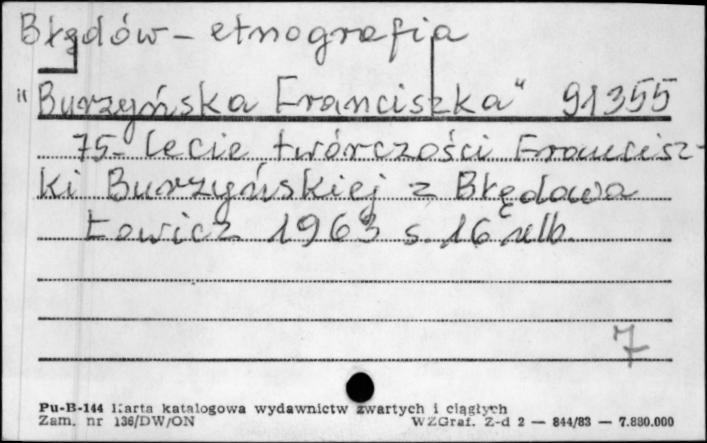 Błędów - etnografia
"Burzyńska Franciszka" 91355
75-lecie twórczości Francisz-
ki Burzyńskiej z Błędowa
Łowicz 1963 s. 16 nlb.
7
Pu-B-144 Karta katalogowa wydawnictw zwartych i ciągłych
Zam. nr 136/DW/ON WZGraf. Z-d 2 — 844/83 — 7.880.000